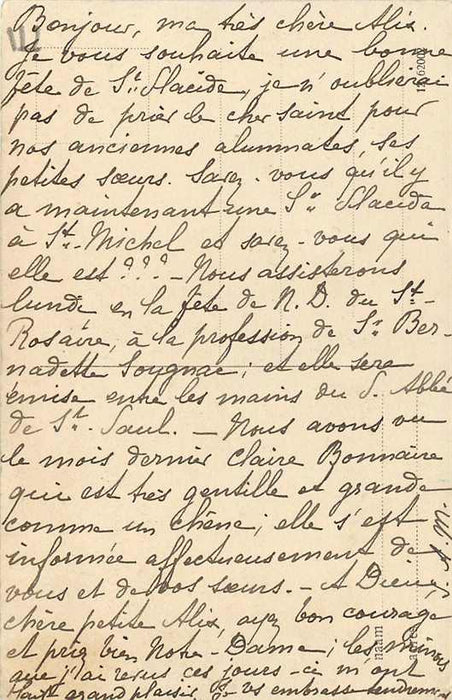 Bonjour, ma très chère Alix.
Je vous souhaite une bonne
fête de St. Placide, je n'oublierai
pas de prier le cher saint pour
nos anciennes alumnates, ses
petites sœurs. Savez-vous qu'il y
a maintenant une Sr. Placida
à St.-Michel et savez-vous qui
elle est ??? - Nous assisterons
lundi en la fête de N. D. du St-
Rosaire, à la profession de Sr. Ber-
nadette Souγnac; et elle sera
émise entre les mains du P. Abbé
de St. Paul. - Nous avons vu
le mois dernier Claire Bonnaire
qui est très gentille et grande
comme un chêne; elle s'est
informée affectueusement de
vous et de vos sœurs. - A Dieu,
chère petite Alix, ayez bon courage
et priez bien Notre-Dame; les
que j'ai reçus ces jours-ci m'ont
fait grand plaisir. Je vs embrasse tendrement
naam